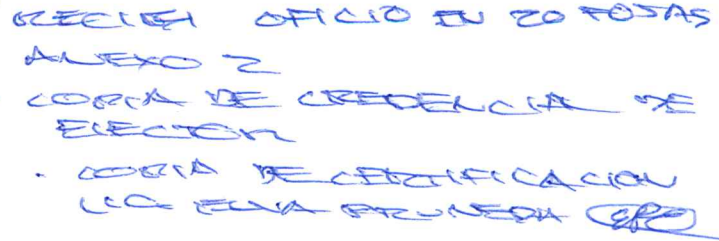 RECIBI OFICIO EN 20 FOJAS
ANEXO 2
COPIA DE CREDENCIAL DE
ELECTOR
. COPIA DE CERTIFICACION
LIC. ELVA PRUNEDA